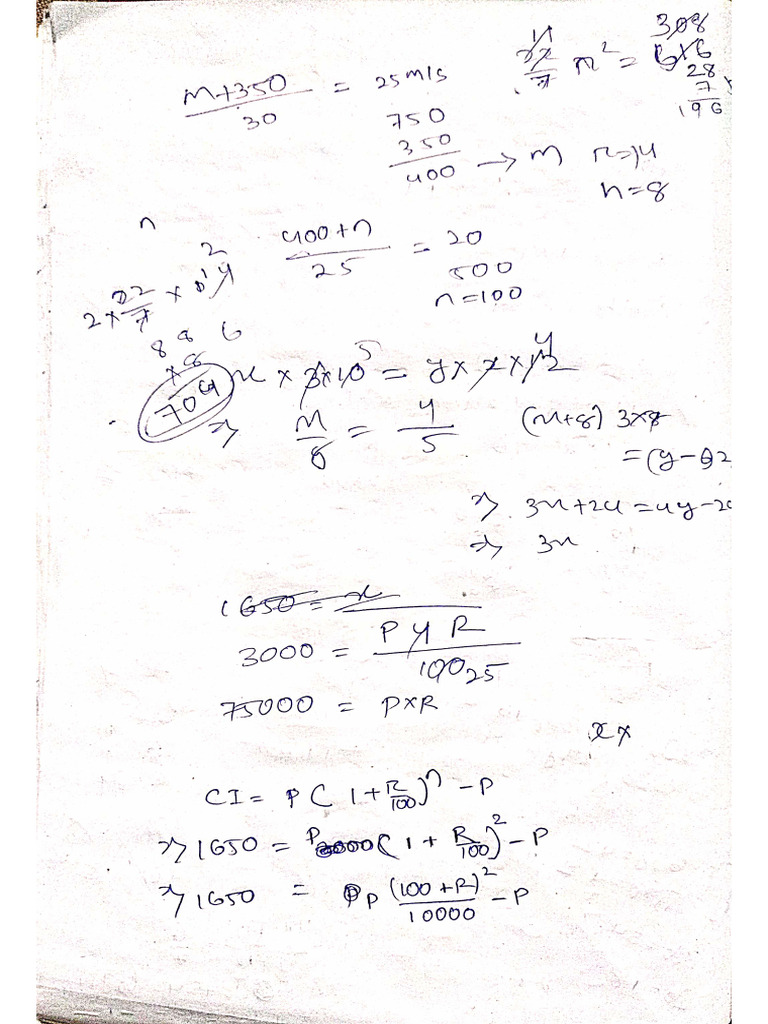 m+350 / 30 = 25 m/s
750
350
400 → m
22/7 r² = 616
308
28
7
196
r=14
h=8
n
400+n / 25 = 20
500
n=100
2 × 22/7 × 14
2
88
× 8
704
x × 3 × 10⁵ = y × 2 × 12 4
⇒ x/8 = 4/5
(x+8) 3×8
= (y-
⇒ 3x+24=4y-2
⇒ 3x
1650 = x
3000 = P 4 R / 100 25
75000 = P×R
x x
CI = P ( 1 + R/100 )ⁿ - P
⇒ 1650 = P ( 1 + R/100 )² - P
⇒ 1650 = P (100+R)² / 10000 - P